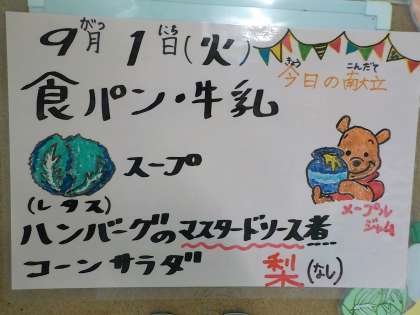 9月1日(火)
がつ にち
今日の献立
きょう こんだて
食パン・牛乳
スープ
(レタス)
メープル
ジャム
ハンバーグのマスタードソース煮
コーンサラダ 梨(なし)